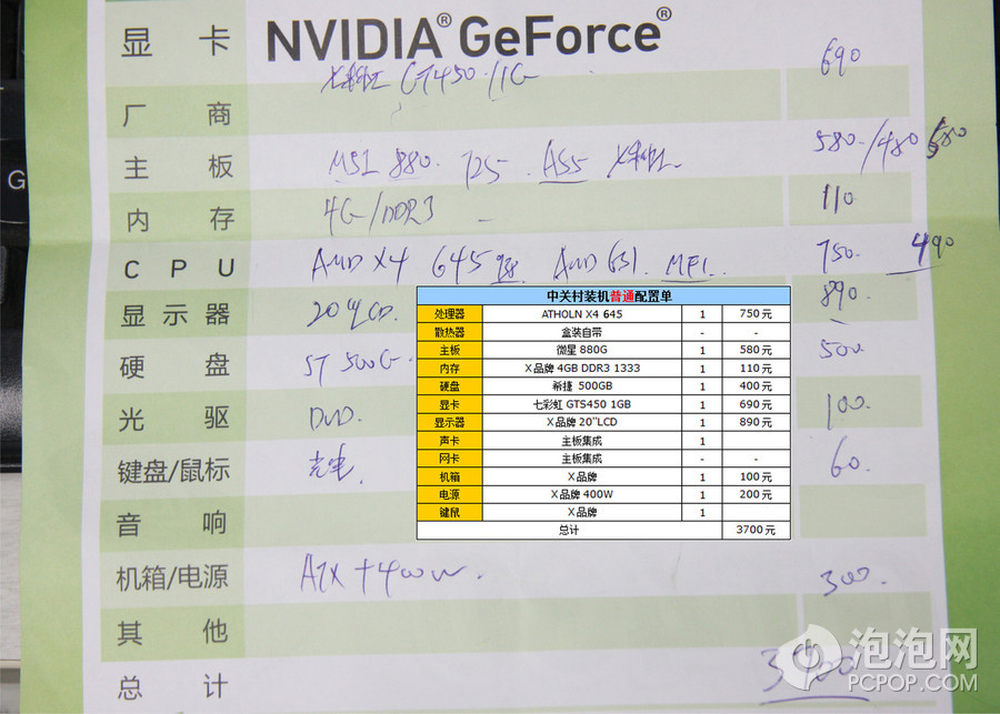 显 卡 NVIDIA® GeForce®
GT450/1G 690
厂 商
主 板 MSI 880. 580./480
内 存 4G/DDR3 110
C P U AMD X4 645 AMD 631. 750. 490
显 示 器 20寸LCD. 890.
硬 盘 ST 500G 500
光 驱 DVD. 100.
键盘/鼠标 光电. 60.
音 响
机箱/电源 ATX+400W. 300.
其 他
总 计
中关村装机普通配置单
处理器 ATHOLN X4 645 1 750元
散热器 盒装自带 - -
主板 微星 880G 1 580元
内存 X品牌 4GB DDR3 1333 1 110元
硬盘 希捷 500GB 1 400元
显卡 七彩虹 GTS450 1GB 1 690元
显示器 X品牌 20"LCD 1 890元
声卡 主板集成 1
网卡 主板集成 - -
机箱 X品牌 1 100元
电源 X品牌 400W 1 200元
键鼠 X品牌 1
总计 3700元
G
泡泡网
PCPOP.COM